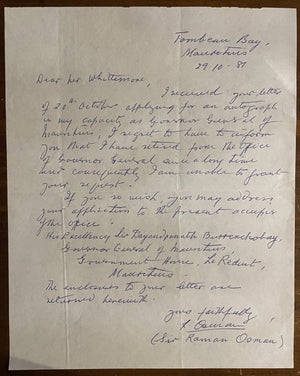 Tombeau Bay,
Mauritius
29.10.81
Dear Mr Whittemore,
I received your letter
of 20th October applying for an autograph
in my capacity as Governor General of
Mauritius, I regret to have to inform
you that I have retired from the office
of Governor General since a long time
and consequently I am unable to grant
your request.
If you so wish, you may address
your application to the present occupier
of the office :
His Excellency Sir Dayendranath Burrenchobay
Governor General of Mauritius
Government House, Le Réduit,
Mauritius.
The enclosures to your letter are
returned herewith.
Yours faithfully,
(Sir Raman Osman)